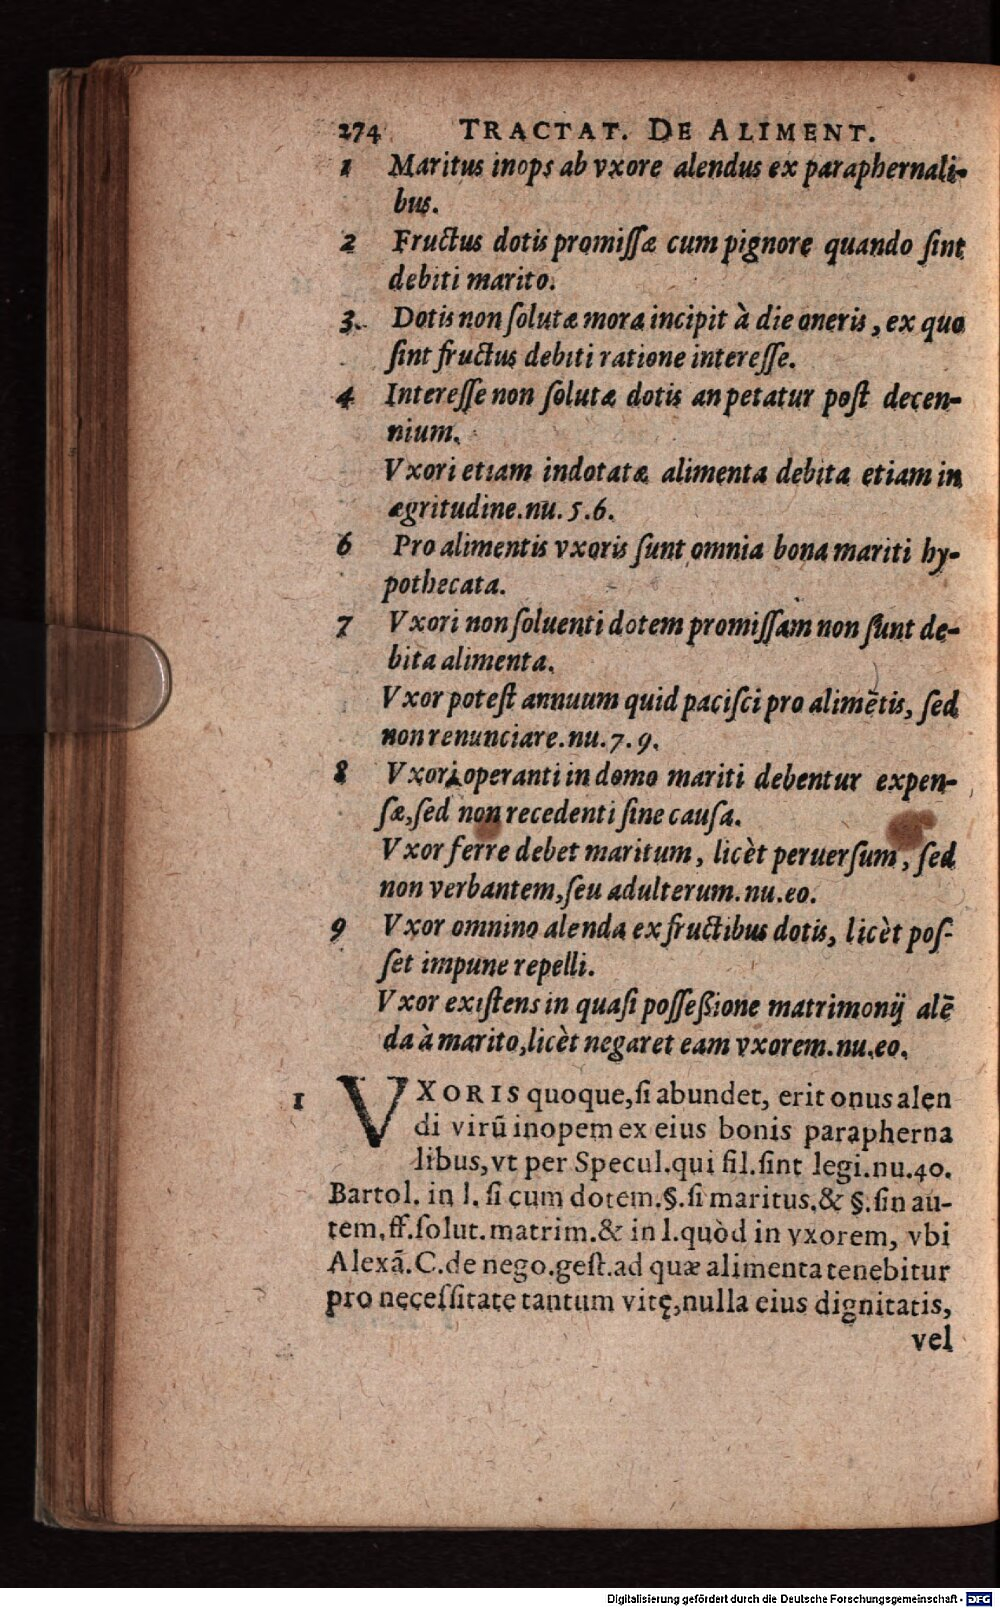 274 TRACTAT. DE ALIMENT.
1 Maritus inops ab vxore alendus ex paraphernali-
bus.
2 Fructus dotis promiſſæ cum pignore quando ſint
debiti marito.
3. Dotis non ſolutæ mora incipit à die oneris, ex quo
ſint fructus debiti ratione intereſſe.
4 Intereſſe non ſolutæ dotis an petatur poſt decen-
nium.
Vxori etiam indotatæ alimenta debita etiam in
ægritudine. nu. 5. 6.
6 Pro alimentis vxoris ſunt omnia bona mariti hy-
pothecata.
7 Vxori non ſoluenti dotem promiſſam non ſunt de-
bita alimenta.
Vxor poteſt annuum quid paciſci pro alimẽtis, ſed
non renunciare. nu. 7. 9.
8 Vxori operanti in domo mariti debentur expen-
ſæ, ſed non recedenti ſine cauſa.
Vxor ferre debet maritum, licèt peruerſum, ſed
non verbantem, ſeu adulterum. nu. eo.
9 Vxor omnino alenda ex fructibus dotis, licèt poſ-
ſet impune repelli.
Vxor exiſtens in quaſi poſſeßione matrimonij alẽ
da à marito, licèt negaret eam vxorem. nu. eo.
1 VXORIS quoque, ſi abundet, erit onus alen
di virũ inopem ex eius bonis parapherna
libus, vt per Specul. qui fil. ſint legi. nu. 40.
Bartol. in l. ſi cum dotem. §. ſi maritus. & §. ſin au-
tem. ff. ſolut. matrim. & in l. quòd in vxorem, vbi
Alexã. C. de nego. geſt. ad quæ alimenta tenebitur
pro neceſſitate tantum vitę, nulla eius dignitatis,
vel
Digitalisierung gefördert durch die Deutsche Forschungsgemeinschaft - DFG